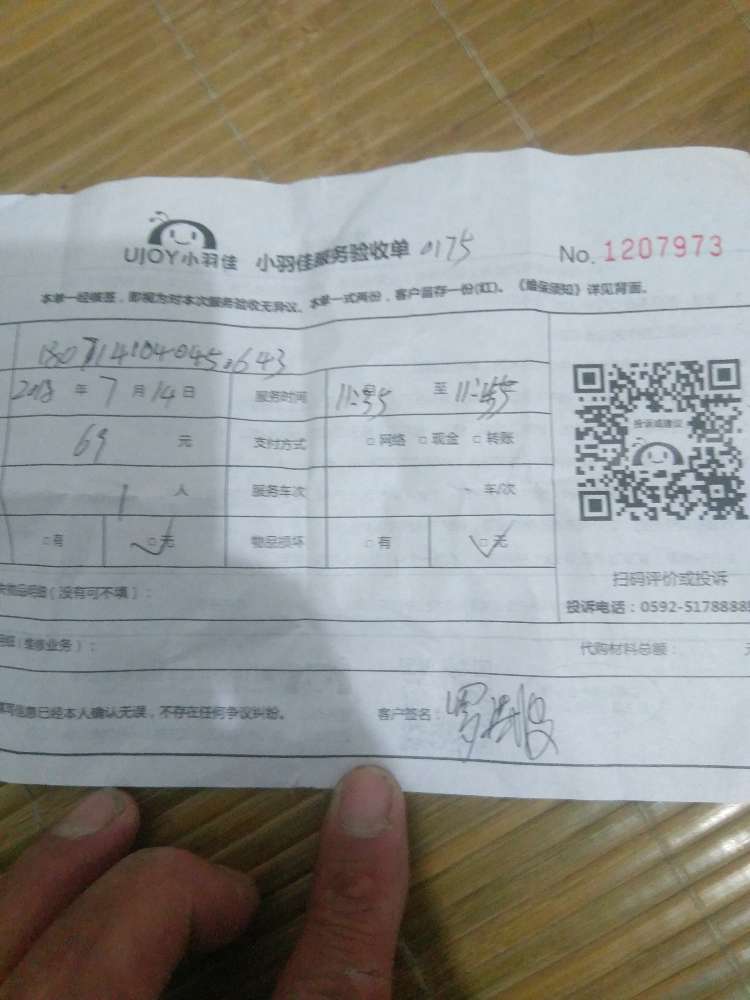 UJOY小羽佳 小羽佳服务验收单 0175 No. 1207973
本单一经签签，即视为对本次服务验收无异议。本单一式两份，客户留存一份(红)。《增保须知》详见背面。
180714104045.643
2018 年 7 月 14 日 服务时间 至
69 元 支付方式 □网络 □现金 □转账
投诉或建议
1 人 服务车次 车/次
□有 □无 物品损坏 □有 □无
扫码评价或投诉
物品明细（没有可不填）：
投诉电话：0592-5178888
明细（维修业务）： 代购材料总额：
填写信息已经本人确认无误，不存在任何争议纠纷。 客户签名：